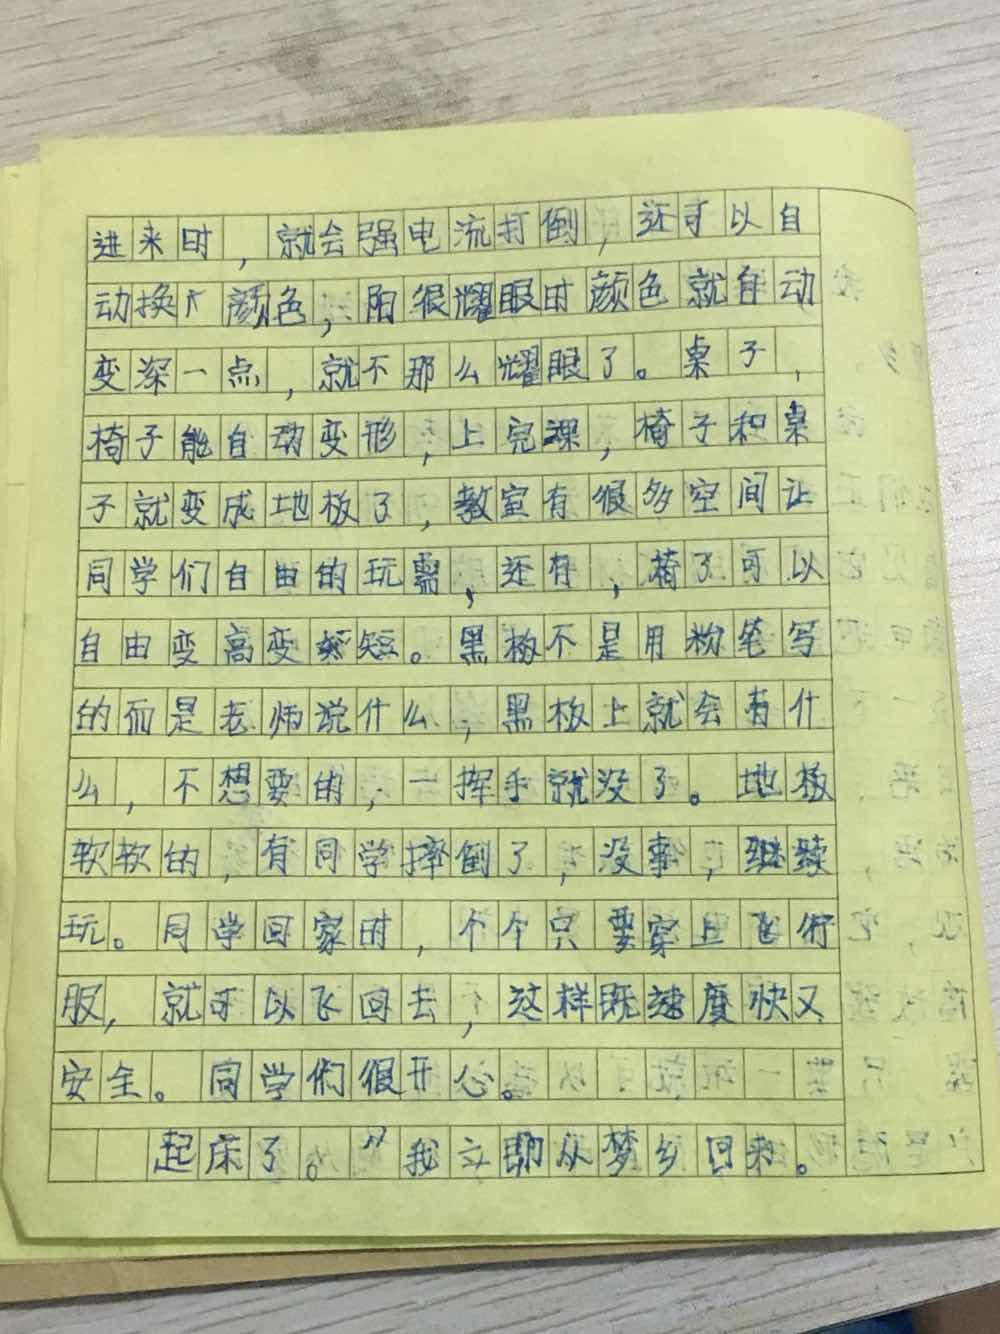 进来时，就会强电流打倒，还可以自
动换大颜色，阳很耀眼时颜色就自动
变深一点，就不那么耀眼了。桌子，
椅子能自动变形，上完课，椅子和桌
子就变成地板了，教室有很多空间让
同学们自由的玩耍，还有，椅子可以
自由变高变矮。黑板不是用粉笔写
的而是老师说什么，黑板上就会有什
么，不想要的，一挥手就没了。地板
软软的，有同学摔倒了，没事，继续
玩。同学回家时，个个只要穿上飞行
服，就可以飞回去，这样既速度快又
安全。同学们很开心。
起床了。”我立即从梦乡回来。